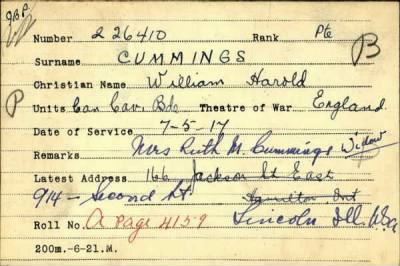 Number 2 26410 Rank Pte
B
Surname CUMMINGS
Christian Name William Harold
P
Units Can Cav. Bde Theatre of War England
Date of Service 7-5-17
Remarks Mrs Ruth M. Cummings Widow
Latest Address 166 Jackson St East
914 - Second St. Hamilton Ont
Roll No. A Page 4159 Lincoln Ill. U.S.A
200m.-6-21.M.